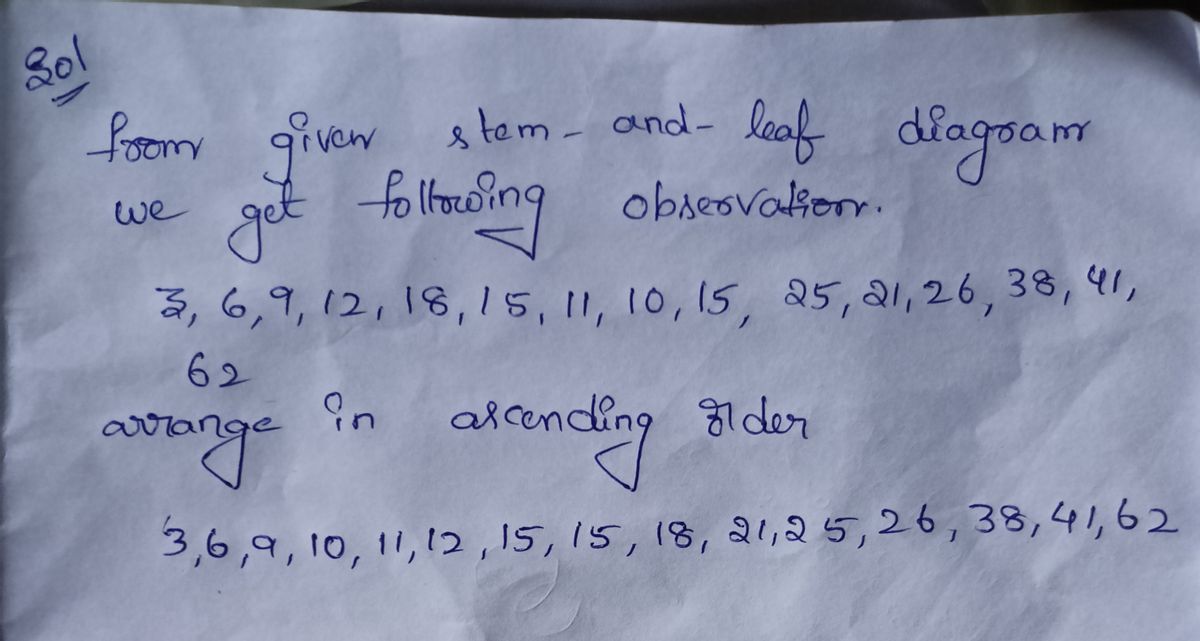 Sol
from given stem-and-leaf diagram
we get following observation.
3, 6, 9, 12, 18, 15, 11, 10, 15, 25, 21, 26, 38, 41,
62
arrange in ascending order
3, 6, 9, 10, 11, 12, 15, 15, 18, 21, 25, 26, 38, 41, 62